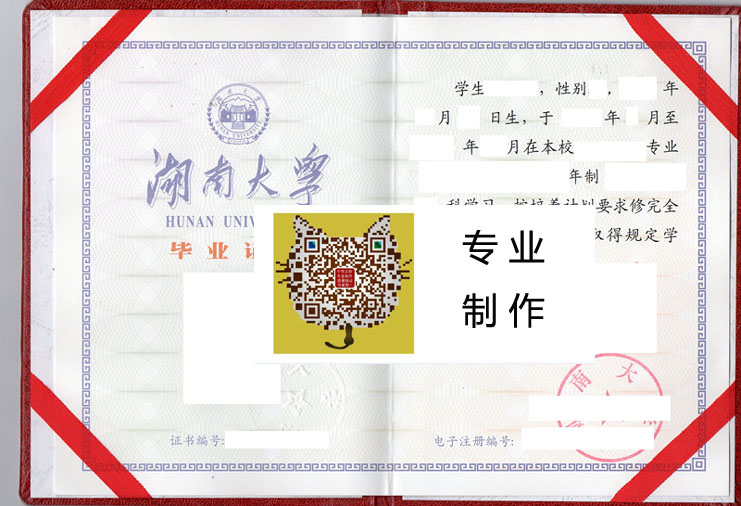 湖南大学
HUNAN UNIV
毕业证
证书编号:
学生 ,性别 , 年
月 日生,于 年 月至
年 月在本校 专业
年制
科学习,按培养计划要求修完全
取得规定学
专业
制作
南大
电子注册编号: